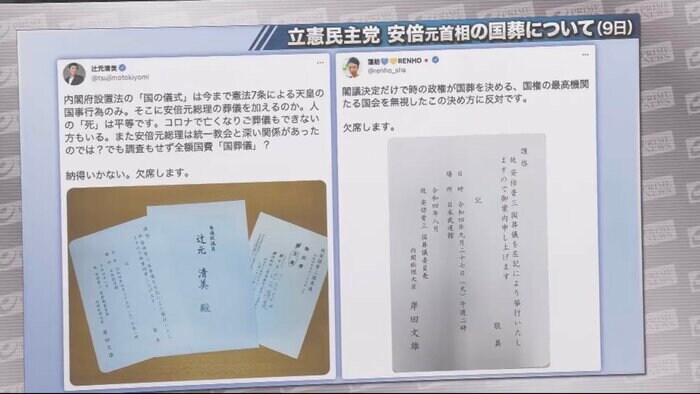 立憲民主党 安倍元首相の国葬について(9日)
辻元清美
@tsujimotokiyomi
内閣府設置法の「国の儀式」は今まで憲法7条による天皇の
国事行為のみ。そこに安倍元総理の葬儀を加えるのか。人
の「死」は平等です。コロナで亡くなりご葬儀もできない
方もいる。また安倍元総理は統一教会と深い関係があった
のでは？でも調査もせず全額国費「国葬儀」？
納得いかない。欠席します。
辻元 清美 殿
蓮舫💙💛RENHO🇯🇵
@renho_sha
閣議決定だけで時の政権が国葬を決める、国権の最高機関
たる国会を無視したこの決め方に反対です。
欠席します。
謹啓
故 安倍晋三 国葬儀を左記により挙行いたし
ますので御案内申し上げます
敬具
記
日 時 令和四年九月二十七日(火)午後二時
場 所 日本武道館
令和四年八月
故 安倍晋三 国葬儀委員長
内閣総理大臣 岸田文雄